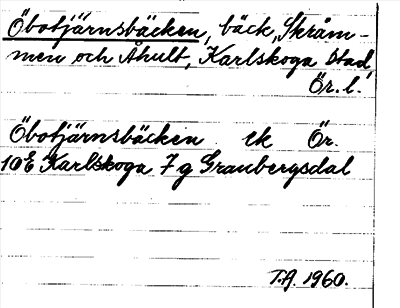 Öbotjärnsbäcken, bäck, Skråm-
men och Åhult, Karlskoga stad,
Ör. l.
Öbotjärnsbäcken ek Ör.
10E Karlskoga 7 g Granbergsdal
T.A. 1960.